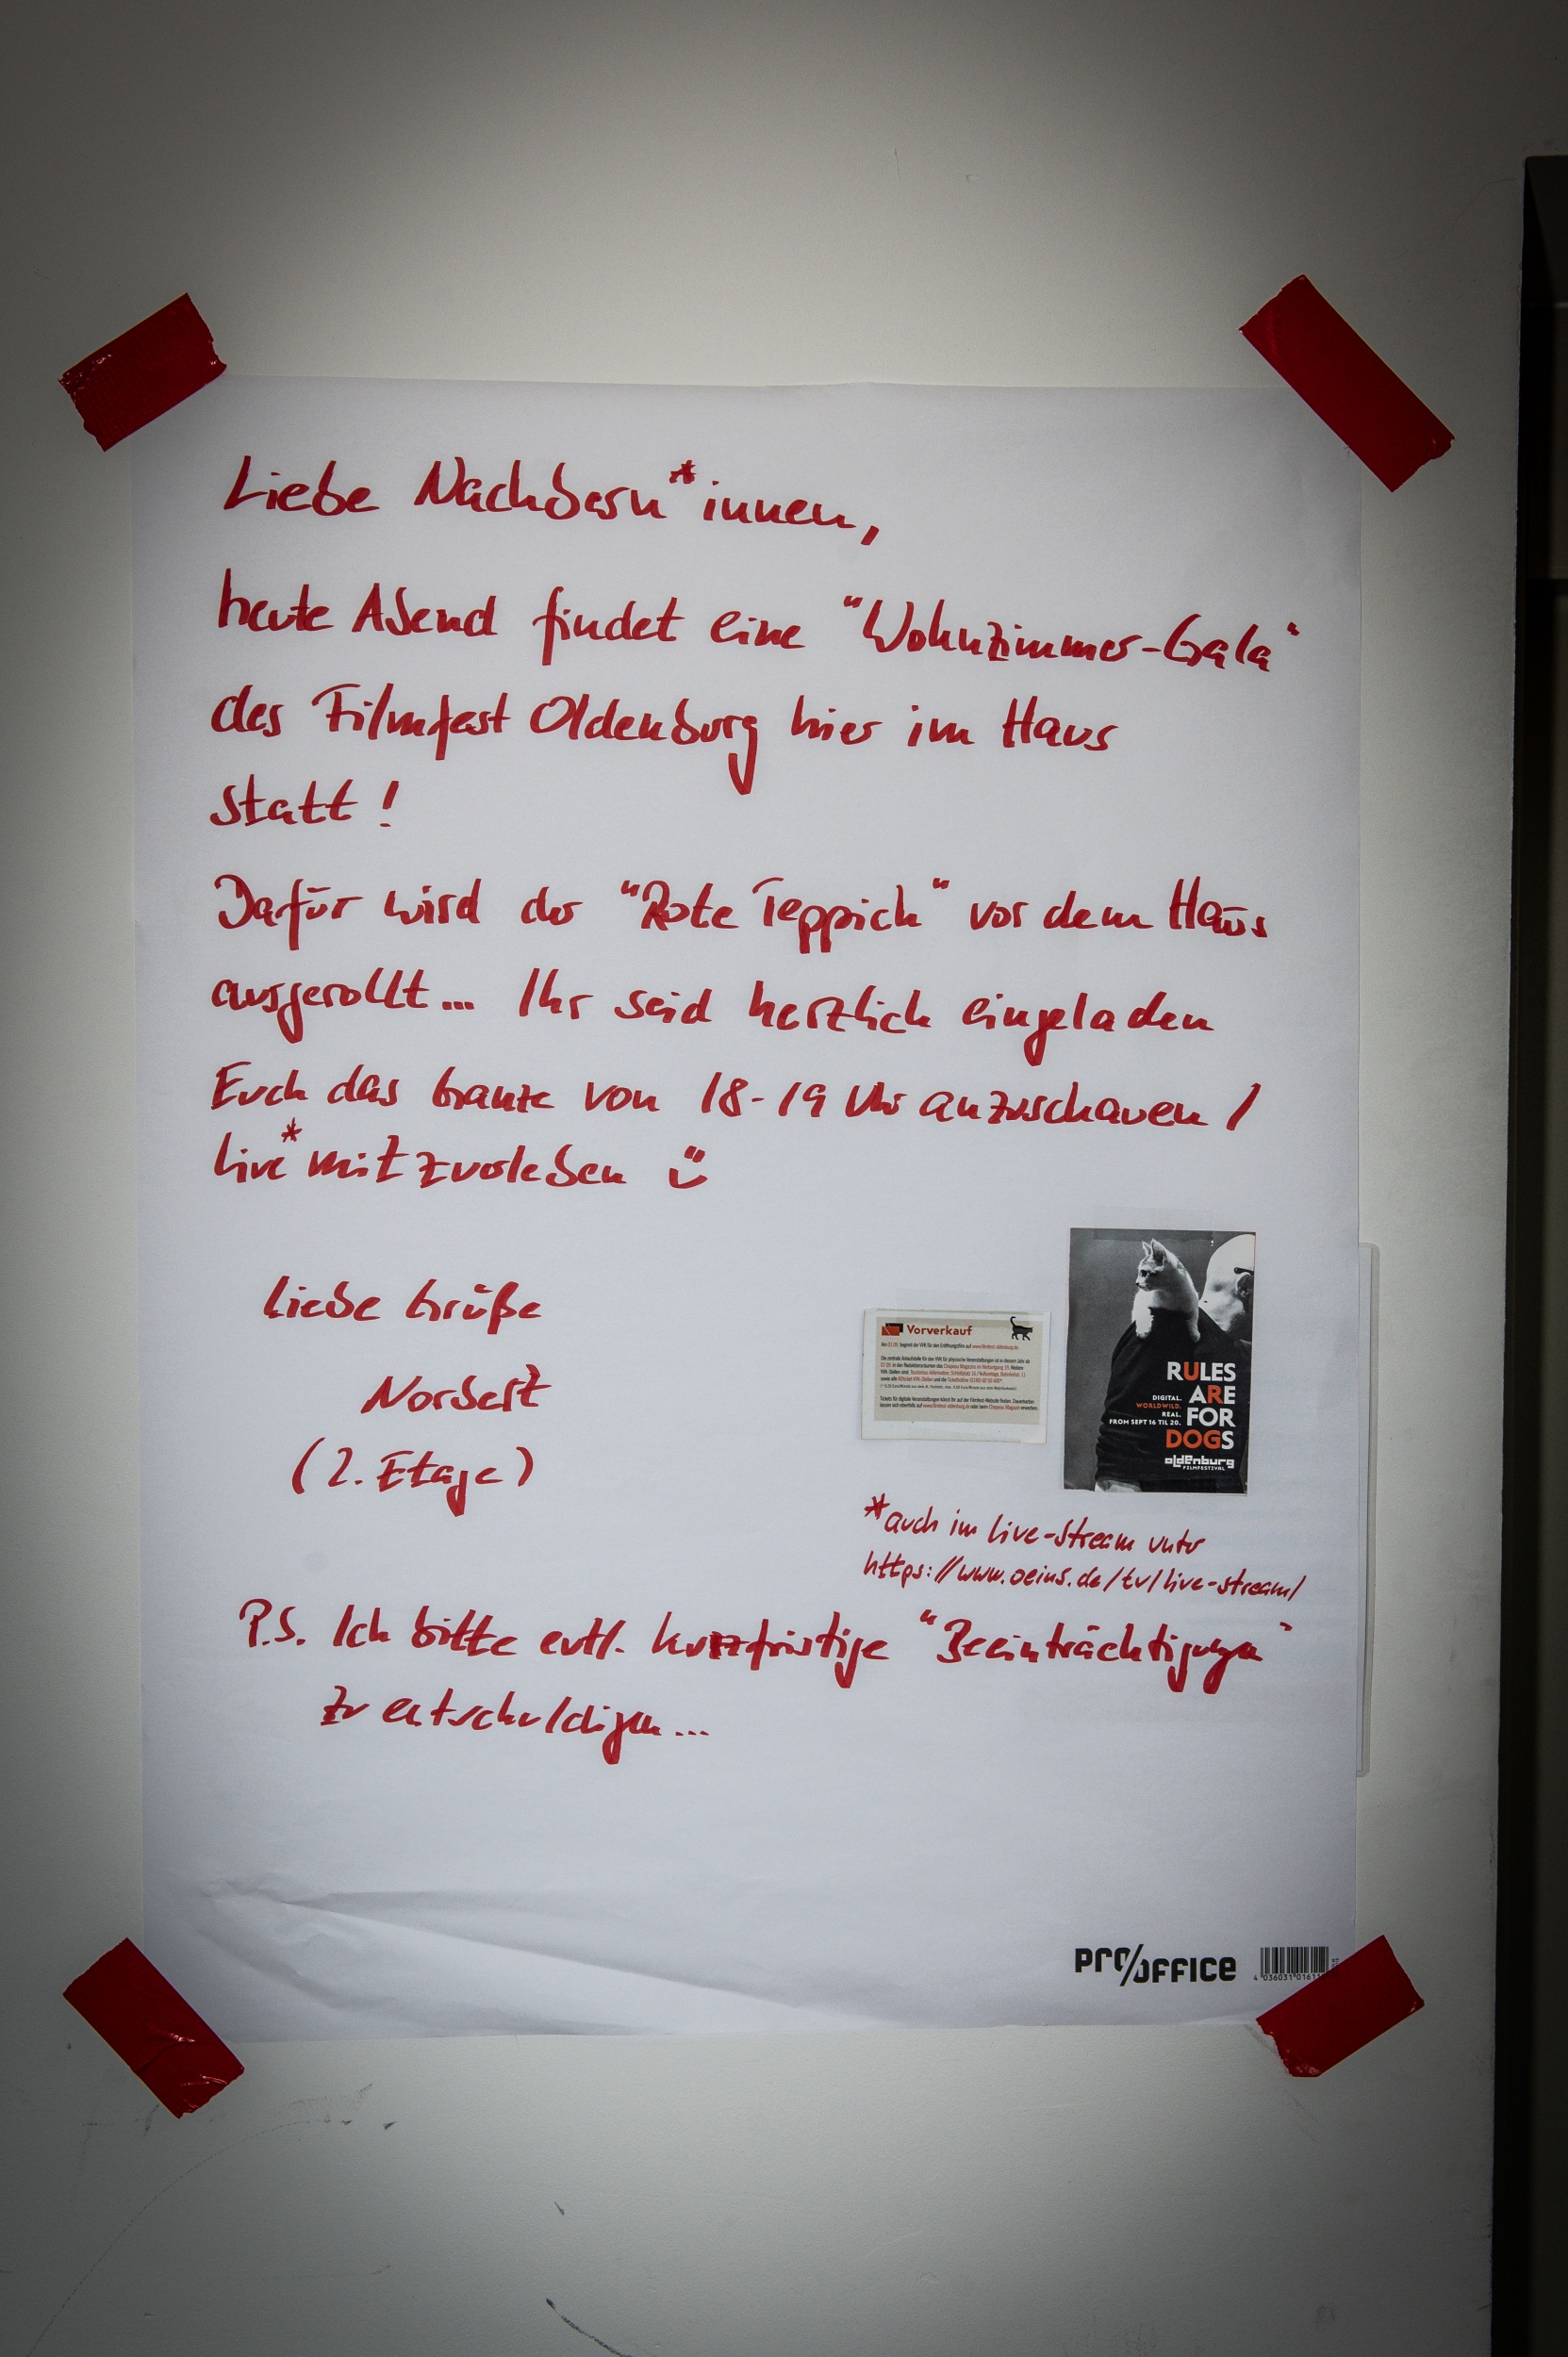 Liebe Nachbarn*innen,
heute Abend findet eine "Wohnzimmer-Gala"
des Filmfest Oldenburg hier im Haus
statt!
Dafür wird der "Rote Teppich" vor dem Haus
ausgerollt... Ihr seid herzlich eingeladen
Euch das Ganze von 18-19 Uhr anzuschauen /
live* mitzuerleben ü
Liebe Grüße
Norbert
(2. Etage)
Vorverkauf
RULES
ARE
FOR
DOGS
DIGITAL.
WORLDWILD.
REAL.
FROM SEPT 16 TIL 20.
oldenburg
FILMFESTIVAL
*auch im live-Stream unter
https://www.oeins.de/tv/live-stream/
P.S. Ich bitte evtl. kurzfristige "Beeinträchtigungen"
zu entschuldigen...
pro/office